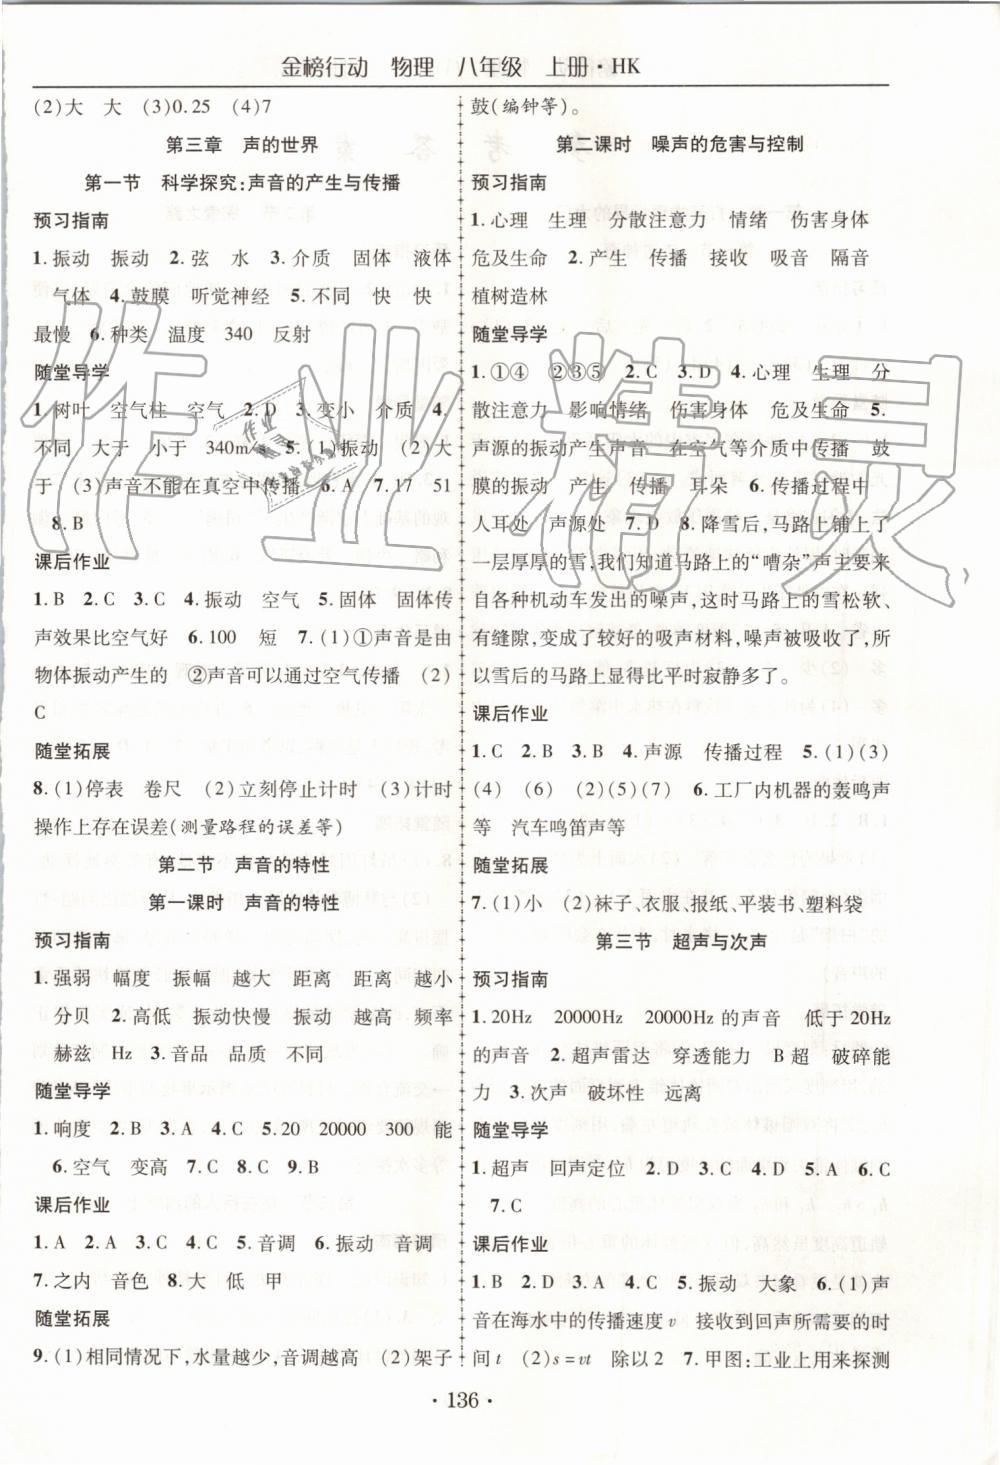 金榜行动　物理　八年级　上册·HK
(2)大　大　(3)0.25　(4)7
第三章　声的世界
第一节　科学探究:声音的产生与传播
预习指南
1.振动　振动　2.弦　水　3.介质　固体　液体
气体　4.鼓膜　听觉神经　5.不同　快　快
最慢　6.种类　温度　340　反射
随堂导学
1.树叶　空气柱　空气　2.D　3.变小　介质　4.
不同　大于　小于　340m/s　5.(1)振动　(2)大
于　(3)声音不能在真空中传播　6.A　7.17　51
8.B
课后作业
1.B　2.C　3.C　4.振动　空气　5.固体　固体传
声效果比空气好　6.100　短　7.(1)①声音是由
物体振动产生的　②声音可以通过空气传播　(2)
C
随堂拓展
8.(1)停表　卷尺　(2)立刻停止计时　(3)计时
操作上存在误差(测量路程的误差等)
第二节　声音的特性
第一课时　声音的特性
预习指南
1.强弱　幅度　振幅　越大　距离　距离　越小
分贝　2.高低　振动快慢　振动　越高　频率
赫兹　Hz　3.音品　品质　不同
随堂导学
1.响度　2.B　3.A　4.C　5.20　20000　300　能
6.空气　变高　7.C　8.C　9.C
课后作业
1.A　2.A　3.C　4.C　5.音调　6.振动　音调
7.之内　音色　8.大　低　甲
随堂拓展
9.(1)相同情况下,水量越少,音调越高　(2)架子
鼓(编钟等)。
第二课时　噪声的危害与控制
预习指南
1.心理　生理　分散注意力　情绪　伤害身体
危及生命　2.产生　传播　接收　吸音　隔音
植树造林
随堂导学
1.①④　②③⑤　2.C　3.D　4.心理　生理　分
散注意力　影响情绪　伤害身体　危及生命　5.
声源的振动产生声音　在空气等介质中传播　鼓
膜的振动　产生　传播　耳朵　6.传播过程中
人耳处　声源处　7.D　8.降雪后,马路上铺上了
一层厚厚的雪,我们知道马路上的“嘈杂”声主要来
自各种机动车发出的噪声,这时马路上的雪松软、
有缝隙,变成了较好的吸声材料,噪声被吸收了,所
以雪后的马路上显得比平时寂静多了。
课后作业
1.C　2.B　3.B　4.声源　传播过程　5.(1)(3)
(4)　(6)　(2)(5)(7)　6.工厂内机器的轰鸣声
等　汽车鸣笛声等
随堂拓展
7.(1)小　(2)袜子、衣服、报纸、平装书、塑料袋
第三节　超声与次声
预习指南
1.20Hz　20000Hz　20000Hz的声音　低于20Hz
的声音　2.超声雷达　穿透能力　B超　破碎能
力　3.次声　破坏性　远离
随堂导学
1.超声　回声定位　2.D　3.C　4.D　5.A　6.C
7.C
课后作业
1.B　2.D　3.A　4.C　5.振动　大象　6.(1)声
音在海水中的传播速度v　接收到回声所需要的时
间t　(2)s=vt　除以2　7.甲图:工业上用来探测
·136·
作业精灵